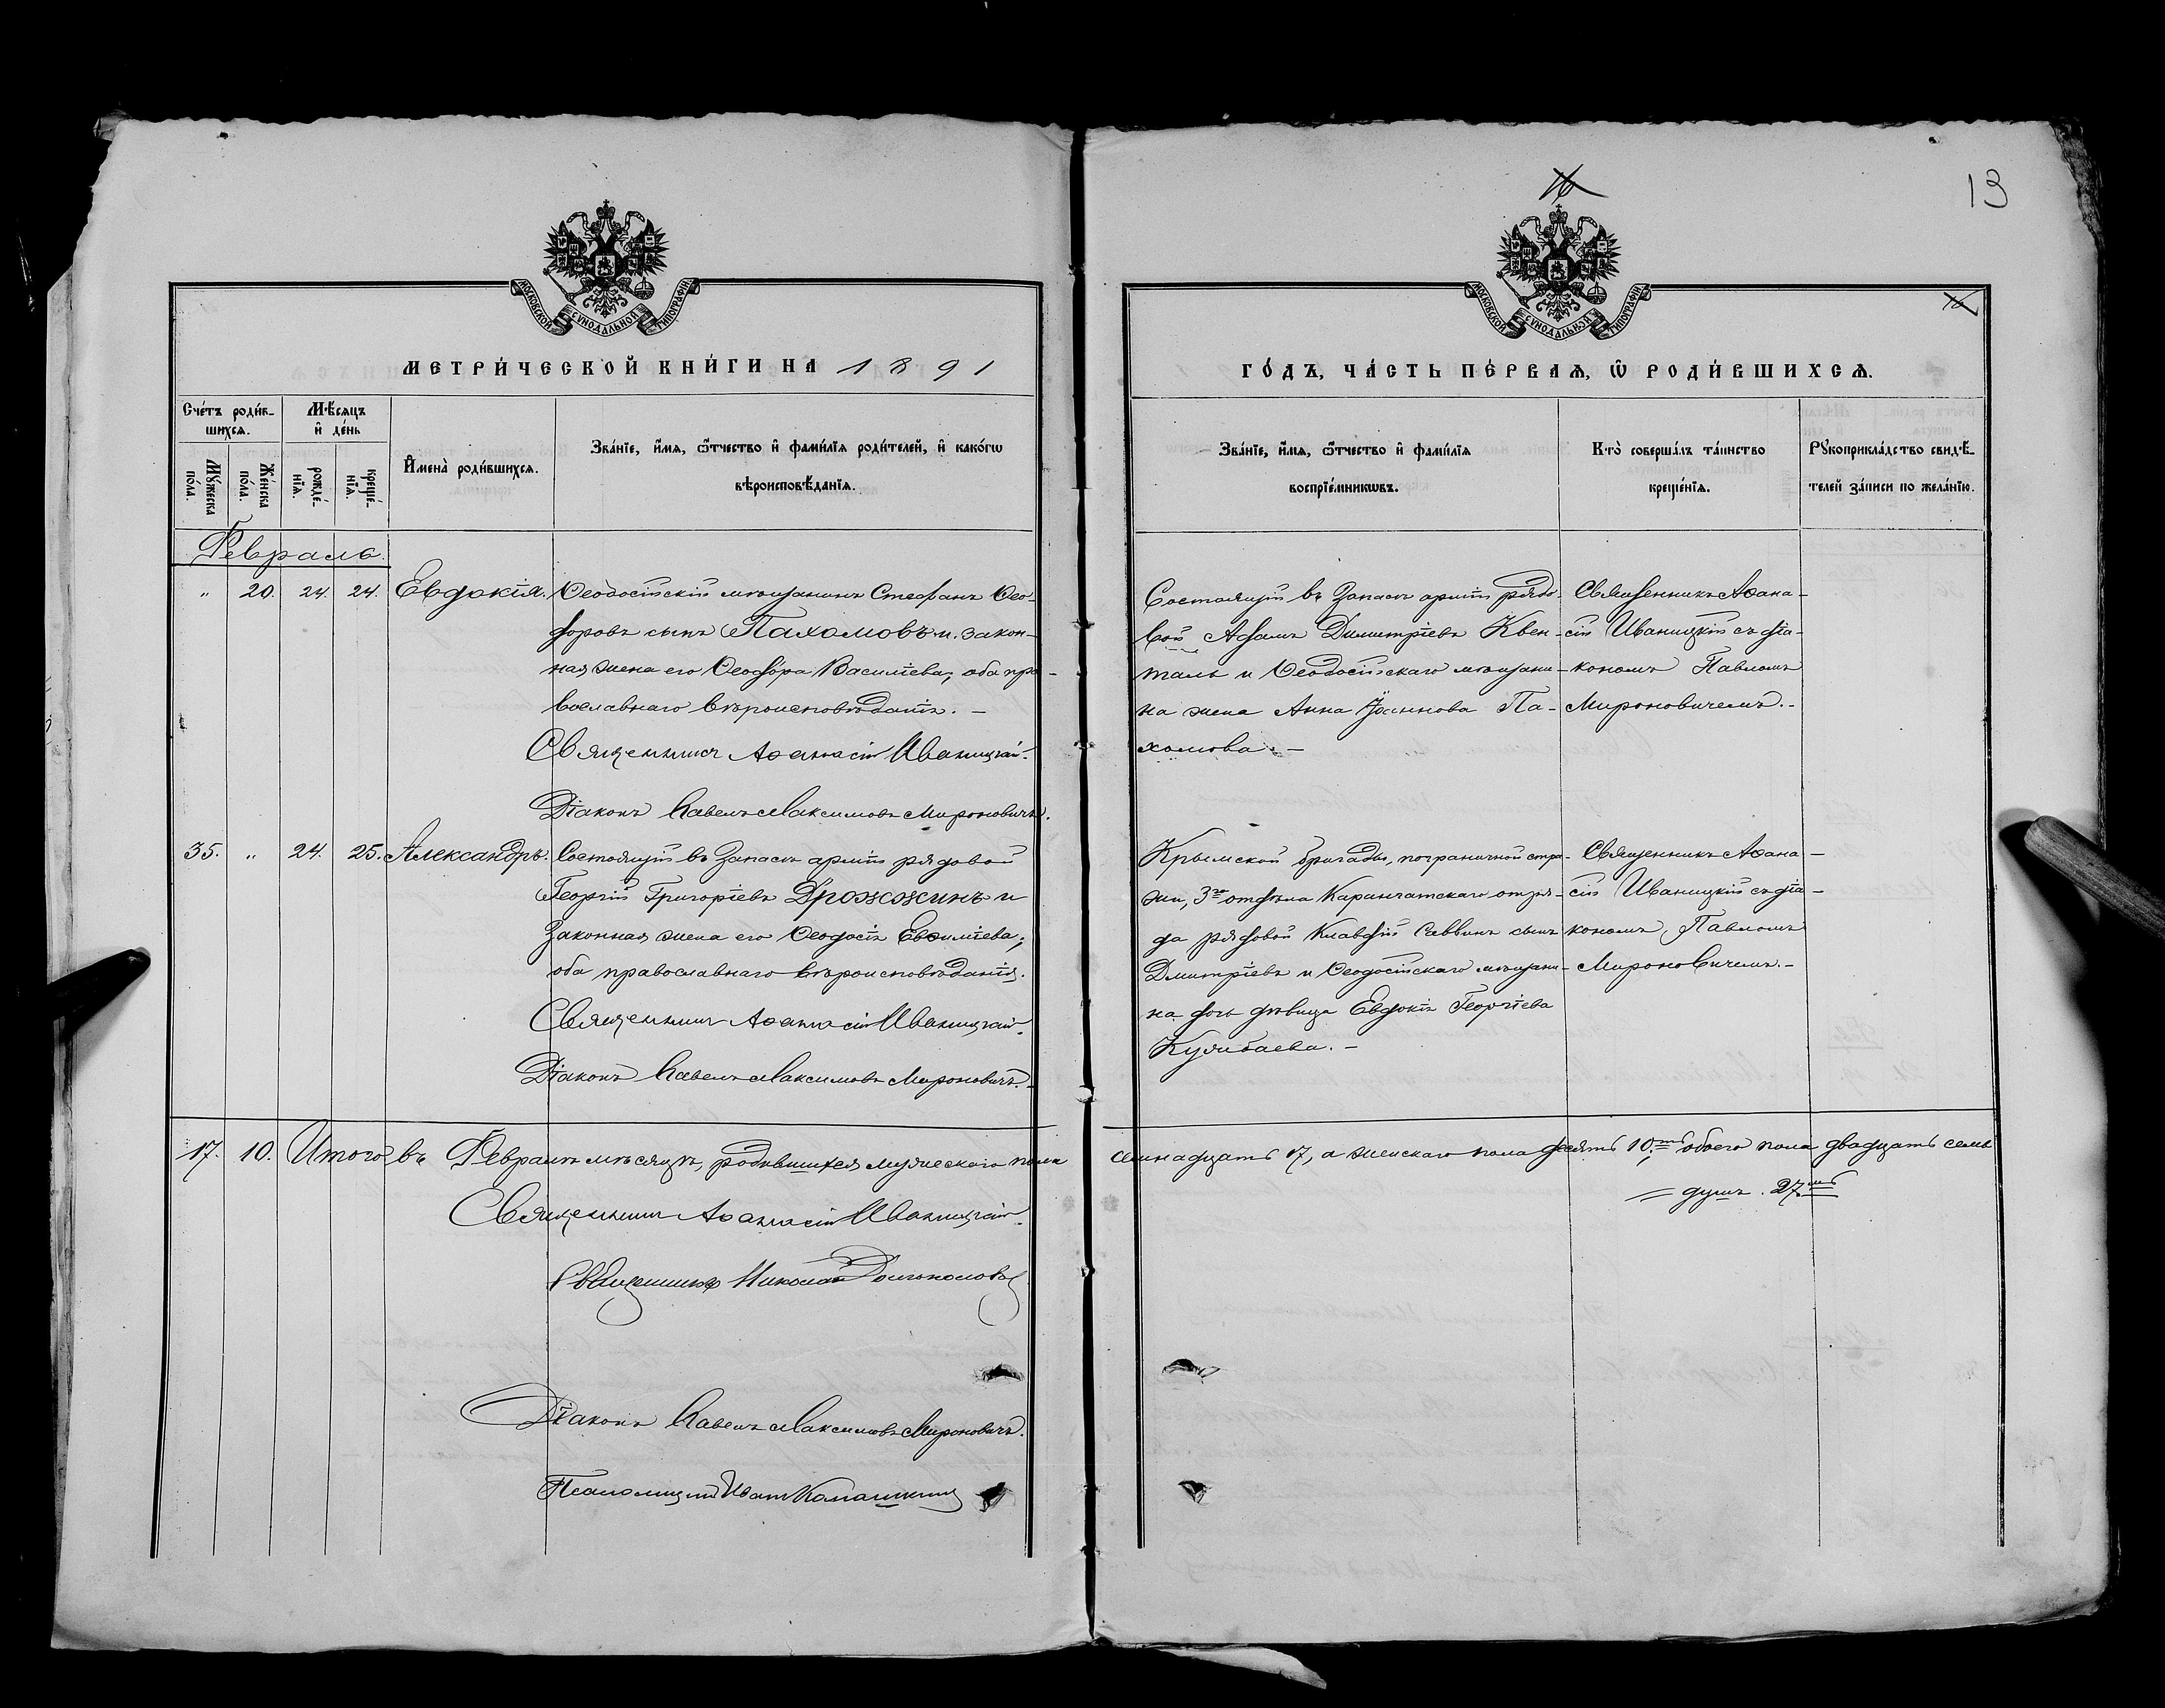 16
13
МОСКОВСКОЙ СУНОДАЛЬНОЙ ТИПОГРАФІИ
МОСКОВСКОЙ СУНОДАЛЬНОЙ ТИПОГРАФІИ
16
МЕТРИ́ЧЕСКОЙ КНИ́ГИ НА 1891
ГО́ДЪ, ЧА́СТЬ ПЕ́РВАѦ, Ѡ҆ РОДИ́ВШИХСѦ.
Сче́тъ роди́в-
шихсѧ.
Мѣ́сѧцъ
и҆ де́нь
Мꙋ́жеска
по́ла.
Же́нска
по́ла.
рожде́-
нїѧ.
креще́-
нїѧ.
И҆мена̀ роди́вшихсѧ.
Зва́нїе, и҆́мѧ, ѻ҆́тчество и҆ фамі́лїѧ роди́телей, и҆ како́гѡ
вѣроисповѣ́данїѧ.
Зва́нїе, и҆́мѧ, ѻ҆́тчество и҆ фамі́лїѧ
воспрїе́мникѡвъ.
Кто̀ соверша́лъ та́инство
креще́нїѧ.
Рꙋкоприкла́дство свидѣ́-
телей за́писи по жела́нїю.
Февраль.
" 20. 24. 24. Евдокія. Ѳеодосійскій мѣщанинъ Стефанъ Ѳео-
доровъ сынъ Пахомовъ и закон-
ная жена его Ѳеодора Василіева, оба пра-
вославнаго вѣроисповѣданія. –
Священникъ Аѳанасій Иваницкій.
Діаконъ Павелъ Максимовъ Мироновичъ.
Состоящій въ Запасѣ арміи рядо-
вой Адамъ Димитріевъ Квен-
таль и Ѳеодосійскаго мѣщани-
на жена Анна Іоаннова Па-
хомова. –
Священникъ Аѳана-
сій Иваницкій съ діа-
кономъ Павломъ
Мироновичемъ. –
35. " 24. 25. Александръ. Состоящій въ Запасѣ арміи рядовой
Георгій Григоріевъ Дрожжинъ и
Законная жена его Ѳеодосія Евѳиміева,
оба православнаго вѣроисповѣданія.
Священникъ Аѳанасій Иваницкій.
Діаконъ Павелъ Максимовъ Мироновичъ.
Крымской бригады, пограничной стра-
жи, 3го отдѣла Карангатскаго отря-
да рядовой Клавдій Саввинъ сынъ
Дмитріевъ и Ѳеодосійскаго мѣщани-
на дочь дѣвица Евдокія Георгіева
Кулибаева. –
Священникъ Аѳана-
сій Иваницкій съ діа-
кономъ Павломъ
Мироновичемъ. –
17. 10. Итого въ Февралѣ мѣсяцѣ, родившихся мужескаго пола
семнадцать 17, а женскаго пола десять 10.ть обоего пола двадцать семь
душъ. 27.мь
Священникъ Аѳанасій Иваницкій.
Священникъ Николай
Діаконъ Павелъ Максимовъ Мироновичъ.
Псаломщикъ Иванъ